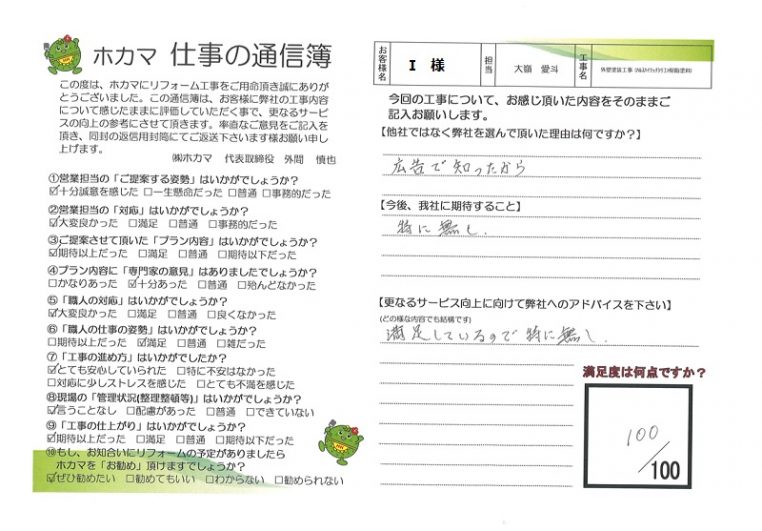 ホカマ 仕事の通信簿
この度は、ホカマにリフォーム工事をご用命頂き誠にありが
とうございました。この通信簿は、お客様に弊社の工事内容
について感じたままに評価していただく事で、更なるサービ
スの向上の参考にさせて頂きます。率直なご意見をご記入を
頂き、同封の返信用封筒にてご返送下さいます様お願い申し
上げます。
㈱ホカマ 代表取締役 外間 慎也
①営業担当の「ご提案する姿勢」はいかがでしょうか?
☑十分誠意を感じた □一生懸命だった □普通 □事務的だった
②営業担当の「対応」はいかがでしょうか?
☑大変良かった □満足 □普通 □事務的だった
③ご提案させて頂いた「プラン内容」はいかがでしょうか?
☑期待以上だった □満足 □普通 □期待以下だった
④プラン内容に「専門家の意見」はありましたでしょうか?
□かなりあった ☑十分あった □普通 □殆んどなかった
⑤「職人の対応」はいかがでしょうか?
☑大変良かった □満足 □普通 □良くなかった
⑥「職人の仕事の姿勢」はいかがでしょうか?
□期待以上だった ☑満足 □普通 □雑だった
⑦「工事の進め方」はいかがでしたか?
☑とても安心していられた □特に不安はなかった
□対応に少しストレスを感じた □とても不満を感じた
⑧現場の「管理状況(整理整頓等)」はいかがでしょうか?
☑言うことなし □配慮があった □普通 □できていない
⑨「工事の仕上がり」はいかがでしょうか?
☑期待以上だった □満足 □普通 □期待以下だった
⑩もし、お知合いにリフォームの予定がありましたら
ホカマを「お勧め」頂けますでしょうか?
☑ぜひ勧めたい □勧めてもいい □わからない □勧められない
お客様名 I 様 担当 大嶺 愛斗 工事名 外壁塗装工事
今回の工事について、お感じ頂いた内容をそのままご
記入お願いします。
【他社ではなく弊社を選んで頂いた理由は何ですか?】
広告で知ったから
【今後、我社に期待すること】
特に無し.
【更なるサービス向上に向けて弊社へのアドバイスを下さい】
(どの様な内容でも結構です)
満足しているので特に無し.
満足度は何点ですか?
100
/100